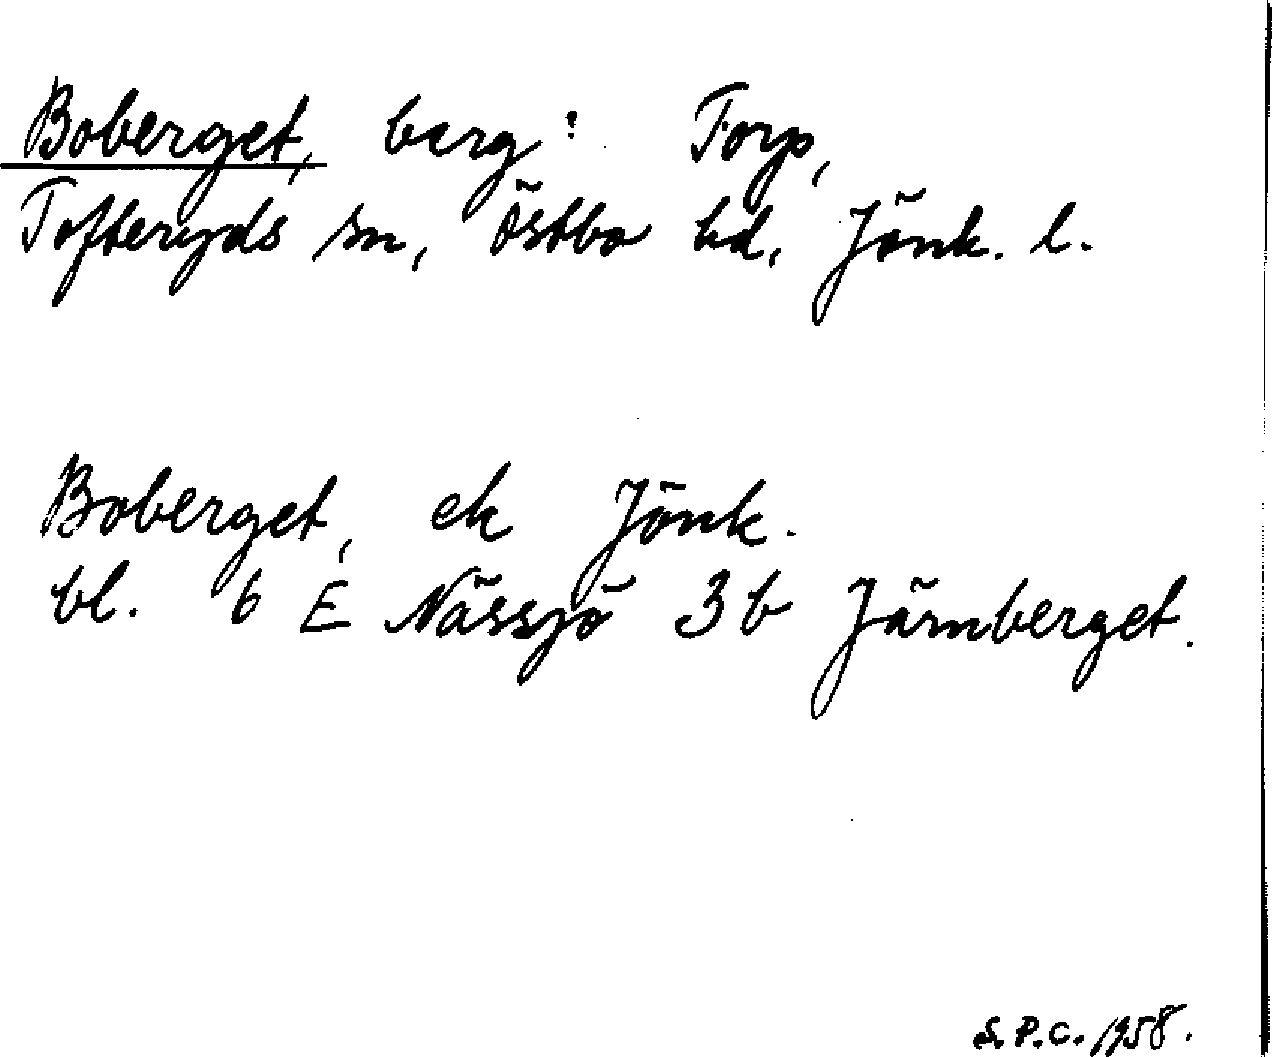 Boberget, berg: Torp,
Tofteryds sn, Östbo hd, Jönk. l.
Boberget, ek Jönk.
bl. 6 E Nässjö 3b Järnberget.
S.P.C. 1958.